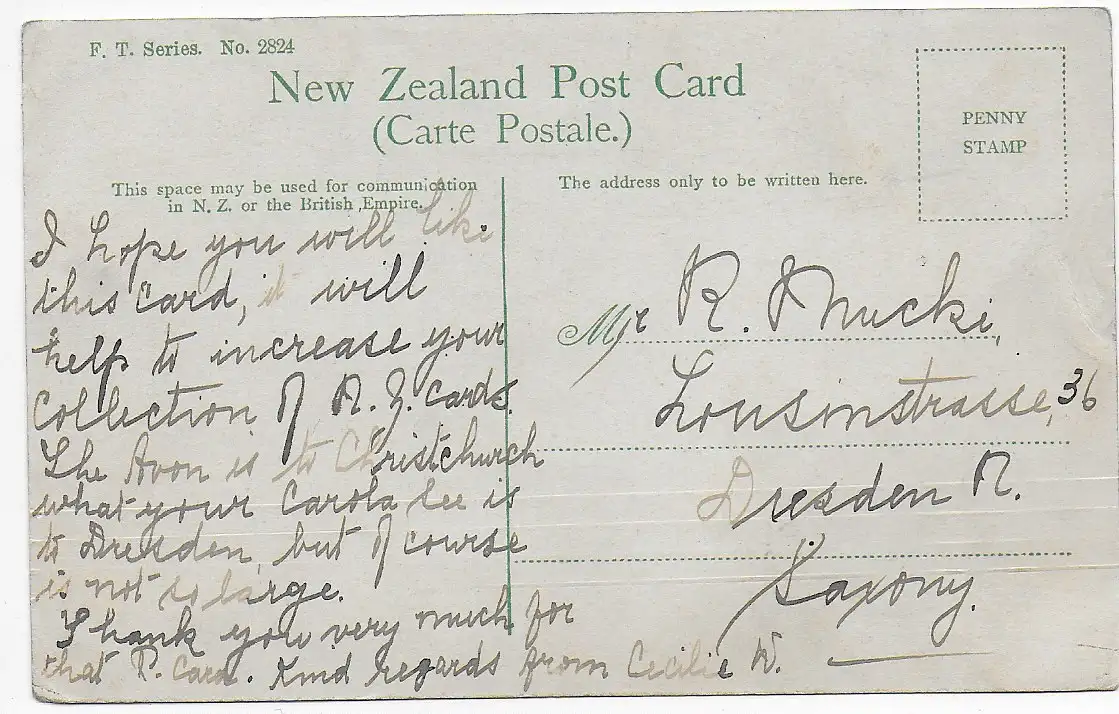 F. T. Series. No. 2824
New Zealand Post Card
(Carte Postale.)
PENNY
STAMP
This space may be used for communication
in N. Z. or the British Empire.
The address only to be written here.
I hope you will like
this card, it will
help to increase your
collection of N. Z. cards.
The Avon is to Christchurch
what your Carola See is
to Dresden, but of course
is not so large.
Thank you very much for
that P. Card. Kind regards from Cecilie W.
Mr R. Mucki,
36
Dresden N.
Saxony.